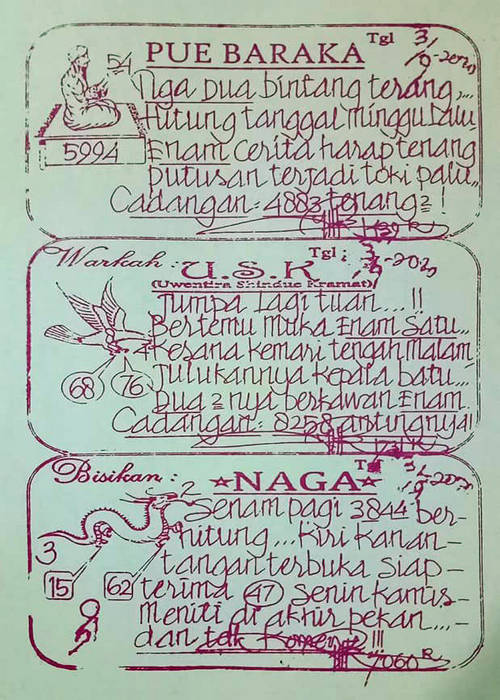 PUE BARAKA Tgl 3/
54 Nga Dua bintang terang,...
Hitung tanggal minggu Lalu
5994 Enam cerita harap tenang
putusan terjadi toki palu,..
Cadangan = 4883 tenang2 !
Warkah : U.S.K Tgl :
(Uwentira Shindue Kramat)
Jumpa Lagi tuan...!!
Bertemu Muka Enam Satu,..
4 Kesana kemari tengah malam
68 76 Julukannya kepala batu,..
Dua 2 nya berkawan Enam.
Cadangan = 8258 antingnya!
Bisikan : NAGA
2 Senam pagi 3844 ber-
hitung...Kiri kanan-
3 tangan terbuka siap-
15 62 terima 47 Senin kamis-
meniti di akhir pekan...-
dan tak Komense !!!
7060 R